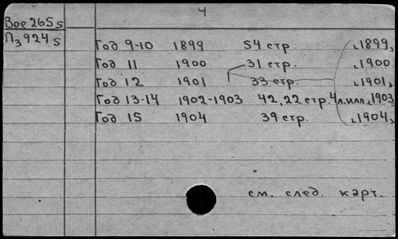 4
Вое 265 5
П3 924 5
Год 9-10 1899 54 стр. 1899,
Год 11 1900 31 стр. 1900
Год 12 1901 33 стр. 1901,
Год 13-14 1902-1903 42, 22 стр. 4 л. илл. 1903
Год 15 1904 39 стр. 1904,
см. след. карт.